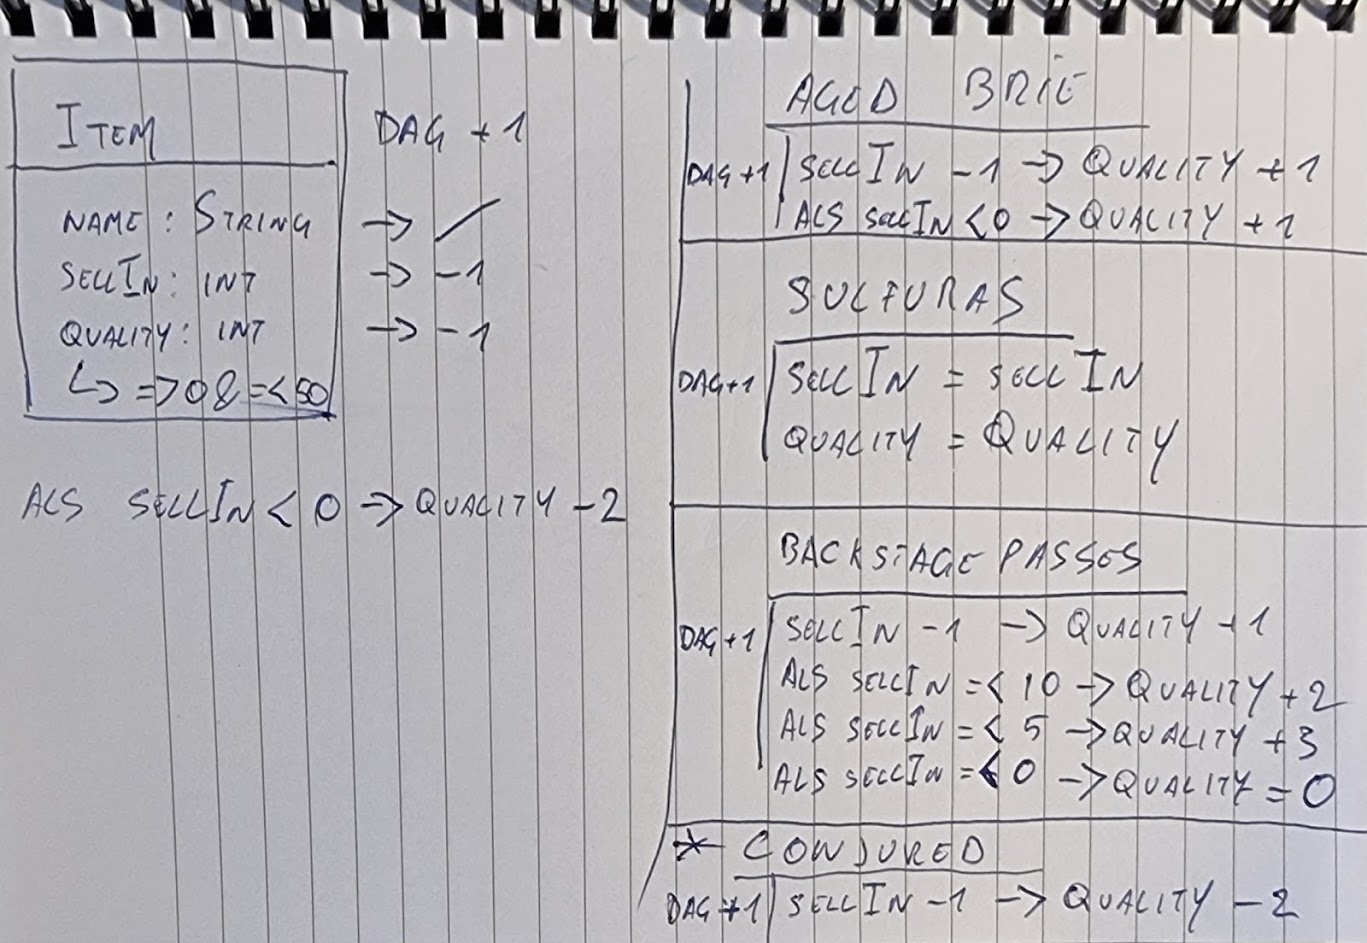 ITEM
DAG + 1
NAME : STRING → /
SELLIN : INT → -1
QUALITY : INT → -1
↳ => 0 & =< 50
ALS SELLIN < 0 → QUALITY - 2
AGED BRIE
DAG +1 SELLIN -1 → QUALITY + 1
ALS SELLIN < 0 → QUALITY + 1
SULFURAS
DAG+1 SELLIN = SELLIN
QUALITY = QUALITY
BACKSTAGE PASSES
DAG+1 SELLIN -1 → QUALITY +1
ALS SELLIN =< 10 → QUALITY + 2
ALS SELLIN =< 5 → QUALITY + 3
ALS SELLIN =< 0 → QUALITY = 0
* CONJURED
DAG +1 SELLIN -1 → QUALITY - 2